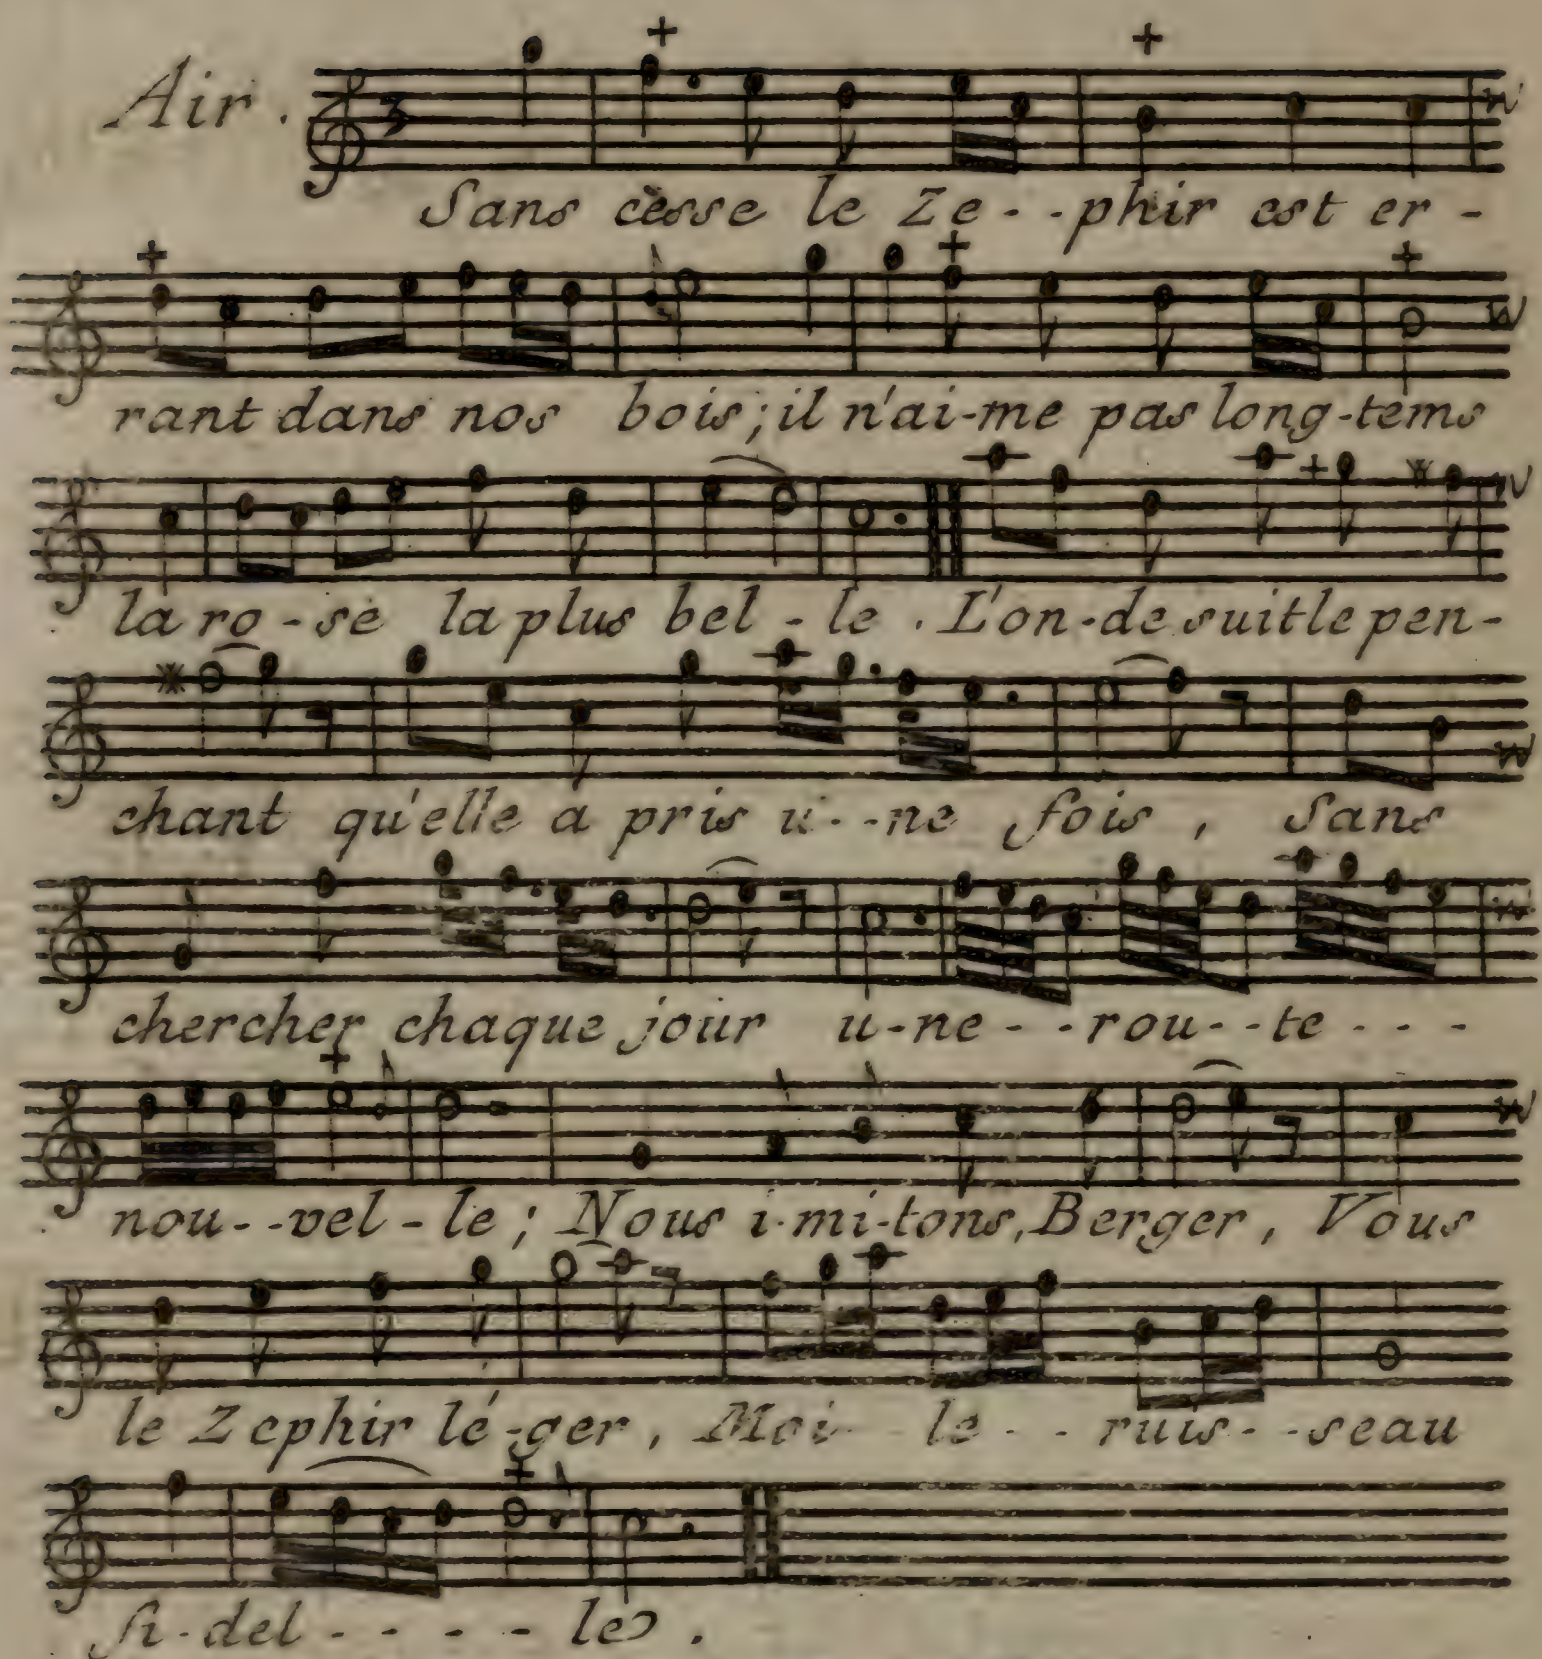 Air.
3
Sans cesse le Ze--phir est er-
rant dans nos bois; il n'ai-me pas long-tems
la ro-se la plus bel-le. L'on-de suit le pen-
chant qu'elle a pris u--ne fois, Sans
chercher chaque jour u-ne--rou--te---
nou--vel-le; Nous i-mi-tons, Berger, Vous
le Zephir lé-ger, Moi le--ruis--seau
fi-del----le.